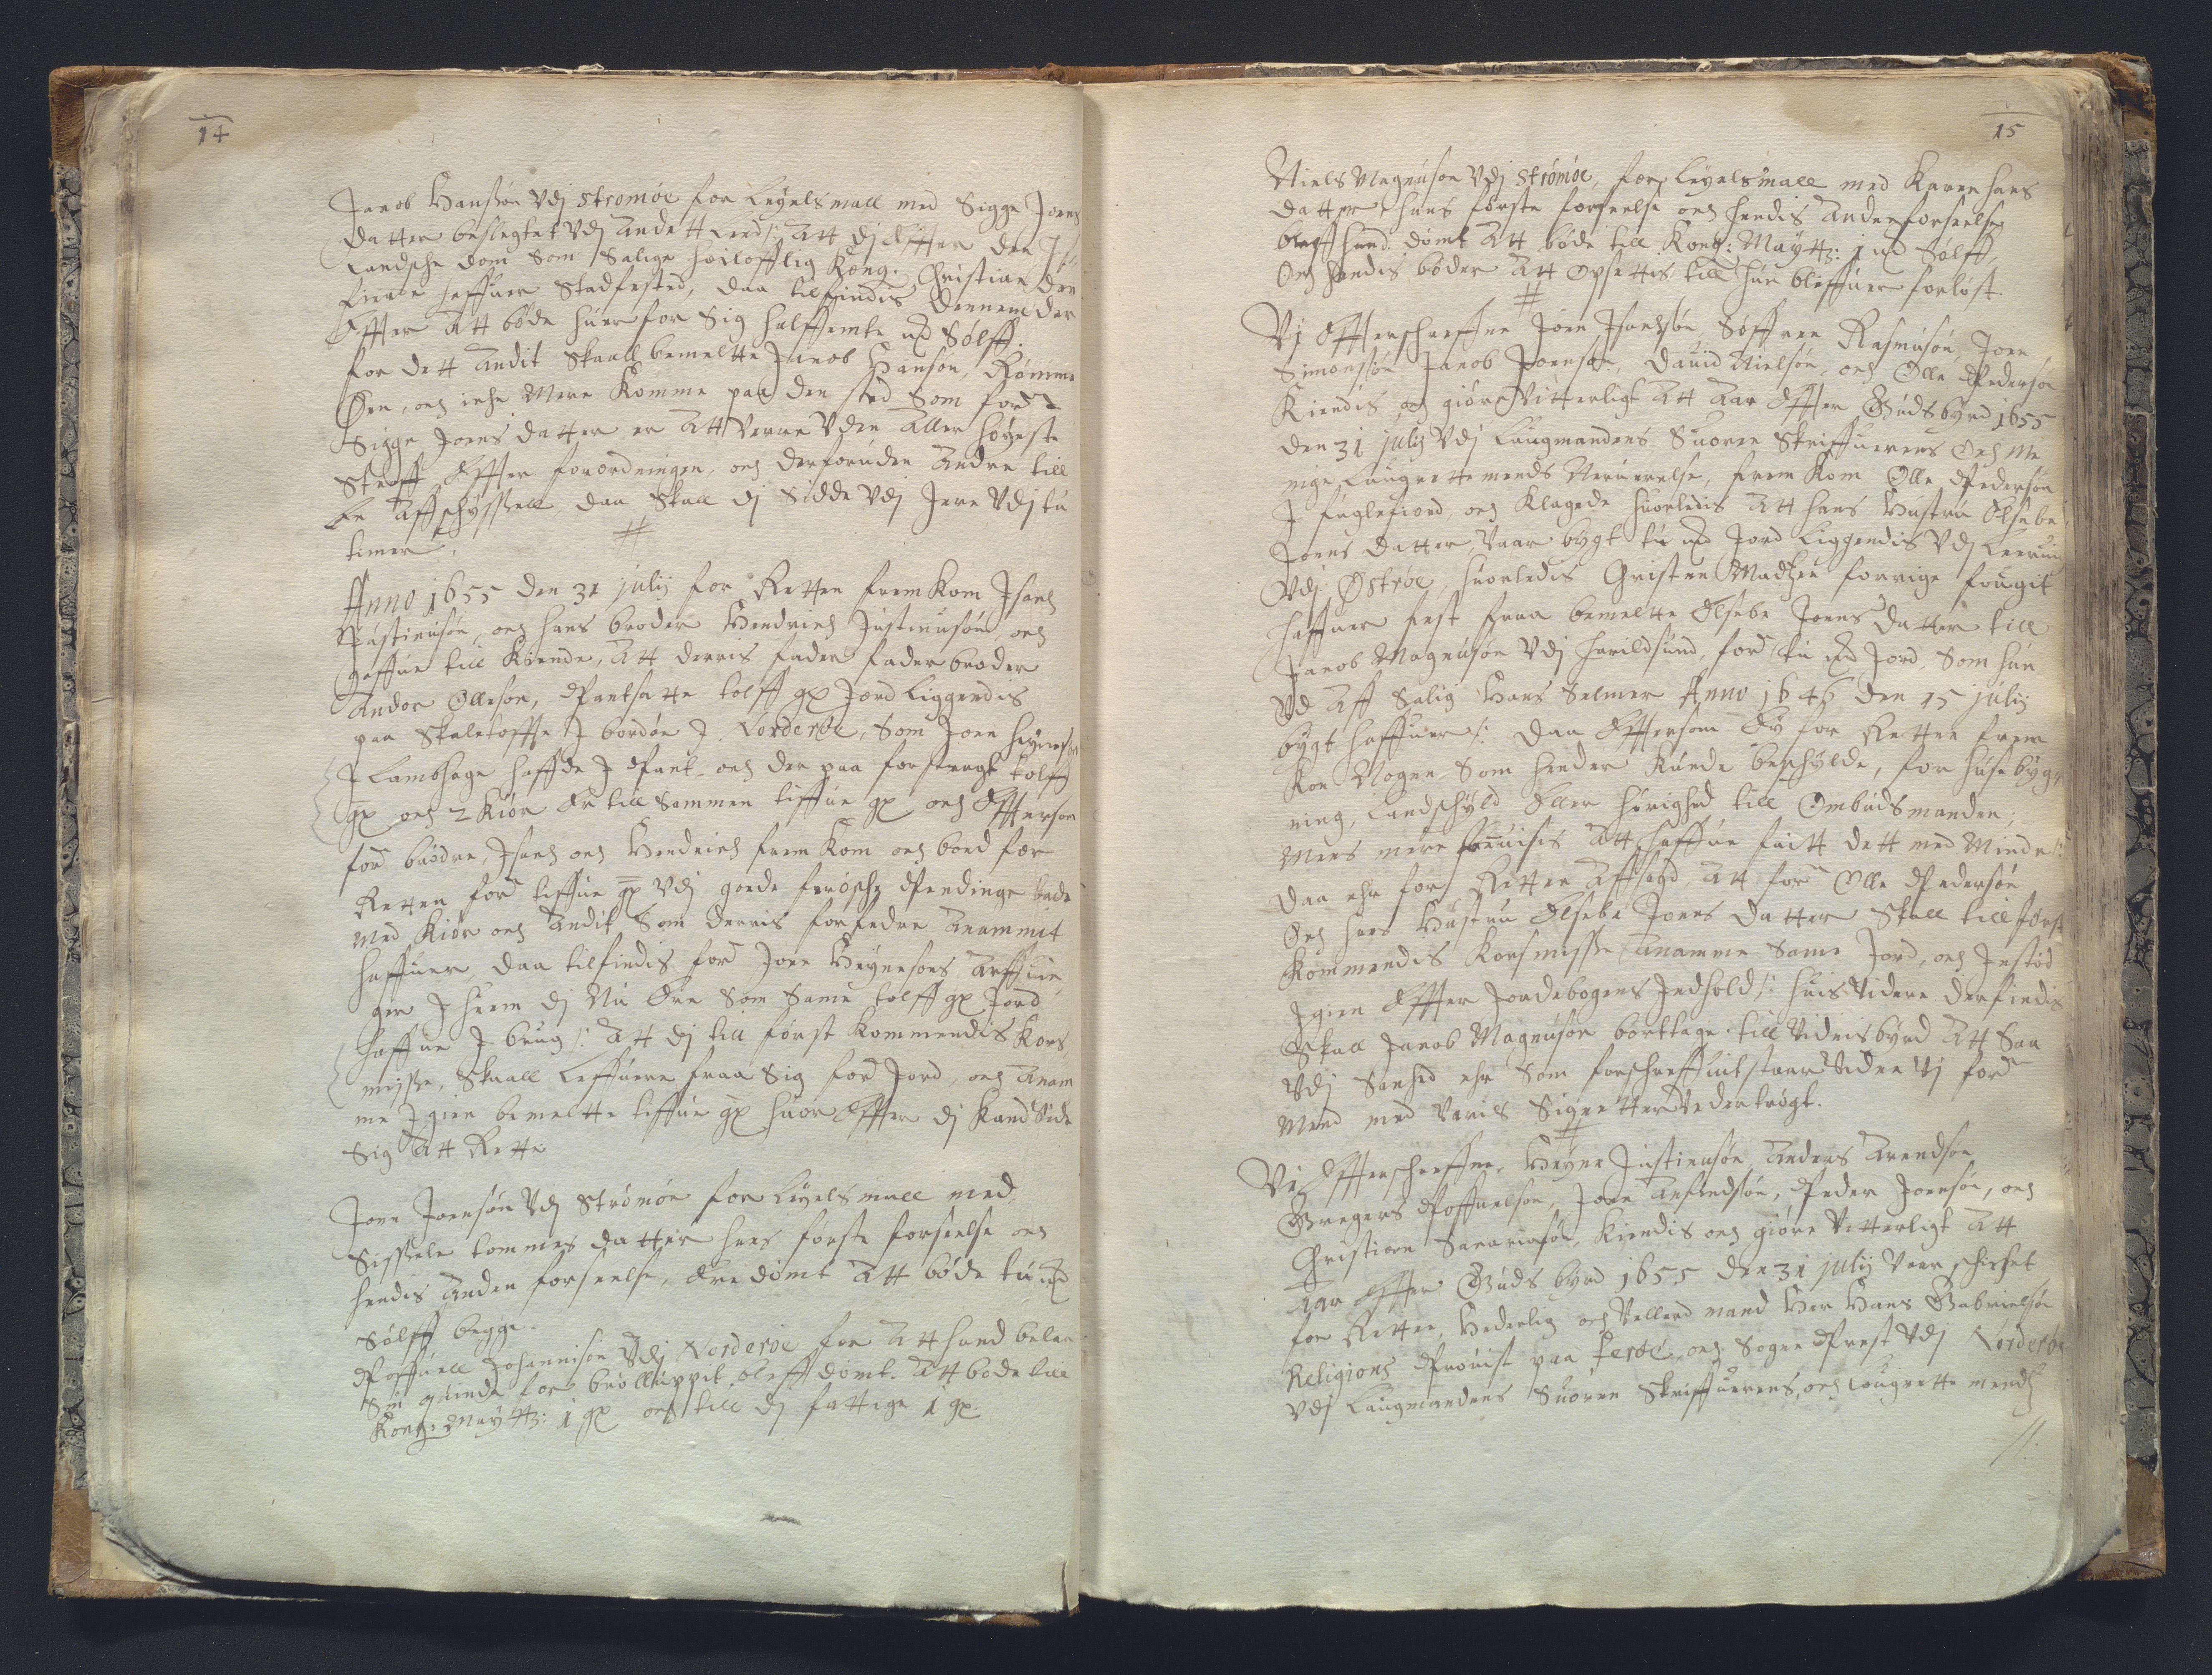 14
Jacob Hansøn Vdj Stromøe for Leyelsmall med Sigge Joens
datter beslegtet Vdj Andet Leed /: Att dj Effter den Jß
landsche dom Som Salige høilofflig Kong: Christian den
fierde haffuer Stadfested, daa tilfindis dennem der
Effter Att bøde huer for Sig halffemte mk Sølff.
for dett Andit Skaall bemeltte Jacob Hansøn, Rømme
Øen, och icke Mere Komme paa den sted Som ford
Sigge Joens datter er Att Verre Vden Aller høyeste
Straff Effter forordningen, och derforuden Andre till
En Affschyssell, daa Skall dj Sidde Vdj Jern Vdj tu
timer.
Anno 1655 den 31 julij for Retten frem Kom Jsach
Justinusøn, och hans broder Hendrich Justinusøn, och
gaffue till Kiende, Att derris fader fader broder
Andor Ollesøn, Pantsatte tolff gl Jord liggendis
paa Skaletofftte J bordøe J Norderøe, Som Joen Heynesøn
J Lambhage haffde J Pant, och der paa forstragt tolff
gl och 2 Kiør Er till Sammen tiffue gl och Effterson
ford brødre, Jsach och Hendrich frem Kom och bød for
Retten ford tiffue gl Vdj goede ferøsche Pendinge bade
Med Kiør och Andit Som derris forfedre Anammit
haffuer, daa tilfindis ford Joen Heynesøns Arffuin
ger J huem dj Nu Ere Som Same tolff gl Jord
haffuer J brug /: Att dj till først Kommendis Kors
misse, Skaall Leffuere fraa Sig ford Jord, och Anam
me J gien bemeltte tiffue gl huor Effter dj Kand Vide
Sig Att Rette
Joen Joensøn Vdj Strømøe for Leyelsmall med
Sissele tommes datter hans første forseelse och
hendis Anden forseelse, Ere dømt Att bøde tu mk
Sølff begge.
Poffuell Johannisøn Vdj Norderøe for Att hand belaa
Sin quinde for brølluppit bleff dømt. Att bøde till
Kong: Maytt: 1 gl och till dj fattige 1 gl
15
Niels Magnusøn Vdj Strømøe, for Leyelsmall med Karen hans
datter hans første forseelse och hendis Anden forseelse
bleff hand dømt Att bøde till Kong: Maytt: 1 mk Sølff,
Och hendis bøder Att Opsettis till hun bliffuer forløst
Vj Effterschreffne Joen Jsachsøn, Søffren Rasmusøn, Joen
Simonsøn Jacob Joensøn, Dauid Nielsøn, och Olle Pedersøn
Kiendis och giøre Vitterligt Att Aar Effter Guds byrd 1655
den 31 julij Vdj Laugmandens Suoren Skriffuerens Och Me
nige Laugrettemends Neruerelse, frem Kom Olle Pedersøn
J fuglefiord, och Klagede huorledis Att hans Hustru Elsebe
Joens datter Vaar bygt tu mk Jord Liggendis Vdj Leeruig
Vdj Østrøe, huorledis Gristen Madtzen forrige fougit
haffuer fest fraa bemeltte Elsebe Joens datter till
Jacob Magnusøn Vdj Harildsund, ford tu mk Jord, Som hun
Vd Aff Salig Hans Selmer Anno 1646 den 15 julij
bygt haffuer /: daa Effterson Ey for Retten frem
Kom Nogen Som hender Kunde beschylde, for huse byg
ning, Landschyld Eller hørighed till Ombudsmanden,
Mens mere foruisis Att haffue fuldt dett med Minde /:
daa ehr for Retten Affsagd Att ford Olle Pedersøn
Och hans Hustru Elsebe Joens datter Skall till først
Kommendis Korsmisse Anamme Same Jord, och Jnstød
J gien Effter Jordebogens Jndhold /: huis Videre derfindis
Skall Jacob Magnusøn borttage till Vidnisbyrd Att Saa
Vdj Sanhed ehr Som forschreffuit staar Vnder Vj ford
Mend med Voris Signetter Vedertrøgt.
Vj Effterschreffne, Heyne Justinusøn, Anders Arendsøn
Gregers Poffuelsøn, Joen Arfindsøn, Peder Joensøn, och
Christieren Sacariasøn, Kiendis och giøre Vitterligt Att
Aar Effter Guds byrd 1655 den 31 julij Vaar schicket
for Retten, Hederlig och Vellerd mand Her Hans Gabrielsøn
Religions Prouist paa Ferøe, och Sogne Prest Vdj Norderøe
Vdj Laugmandens Suoren Skriffuerens, och Laugrette mends
//.